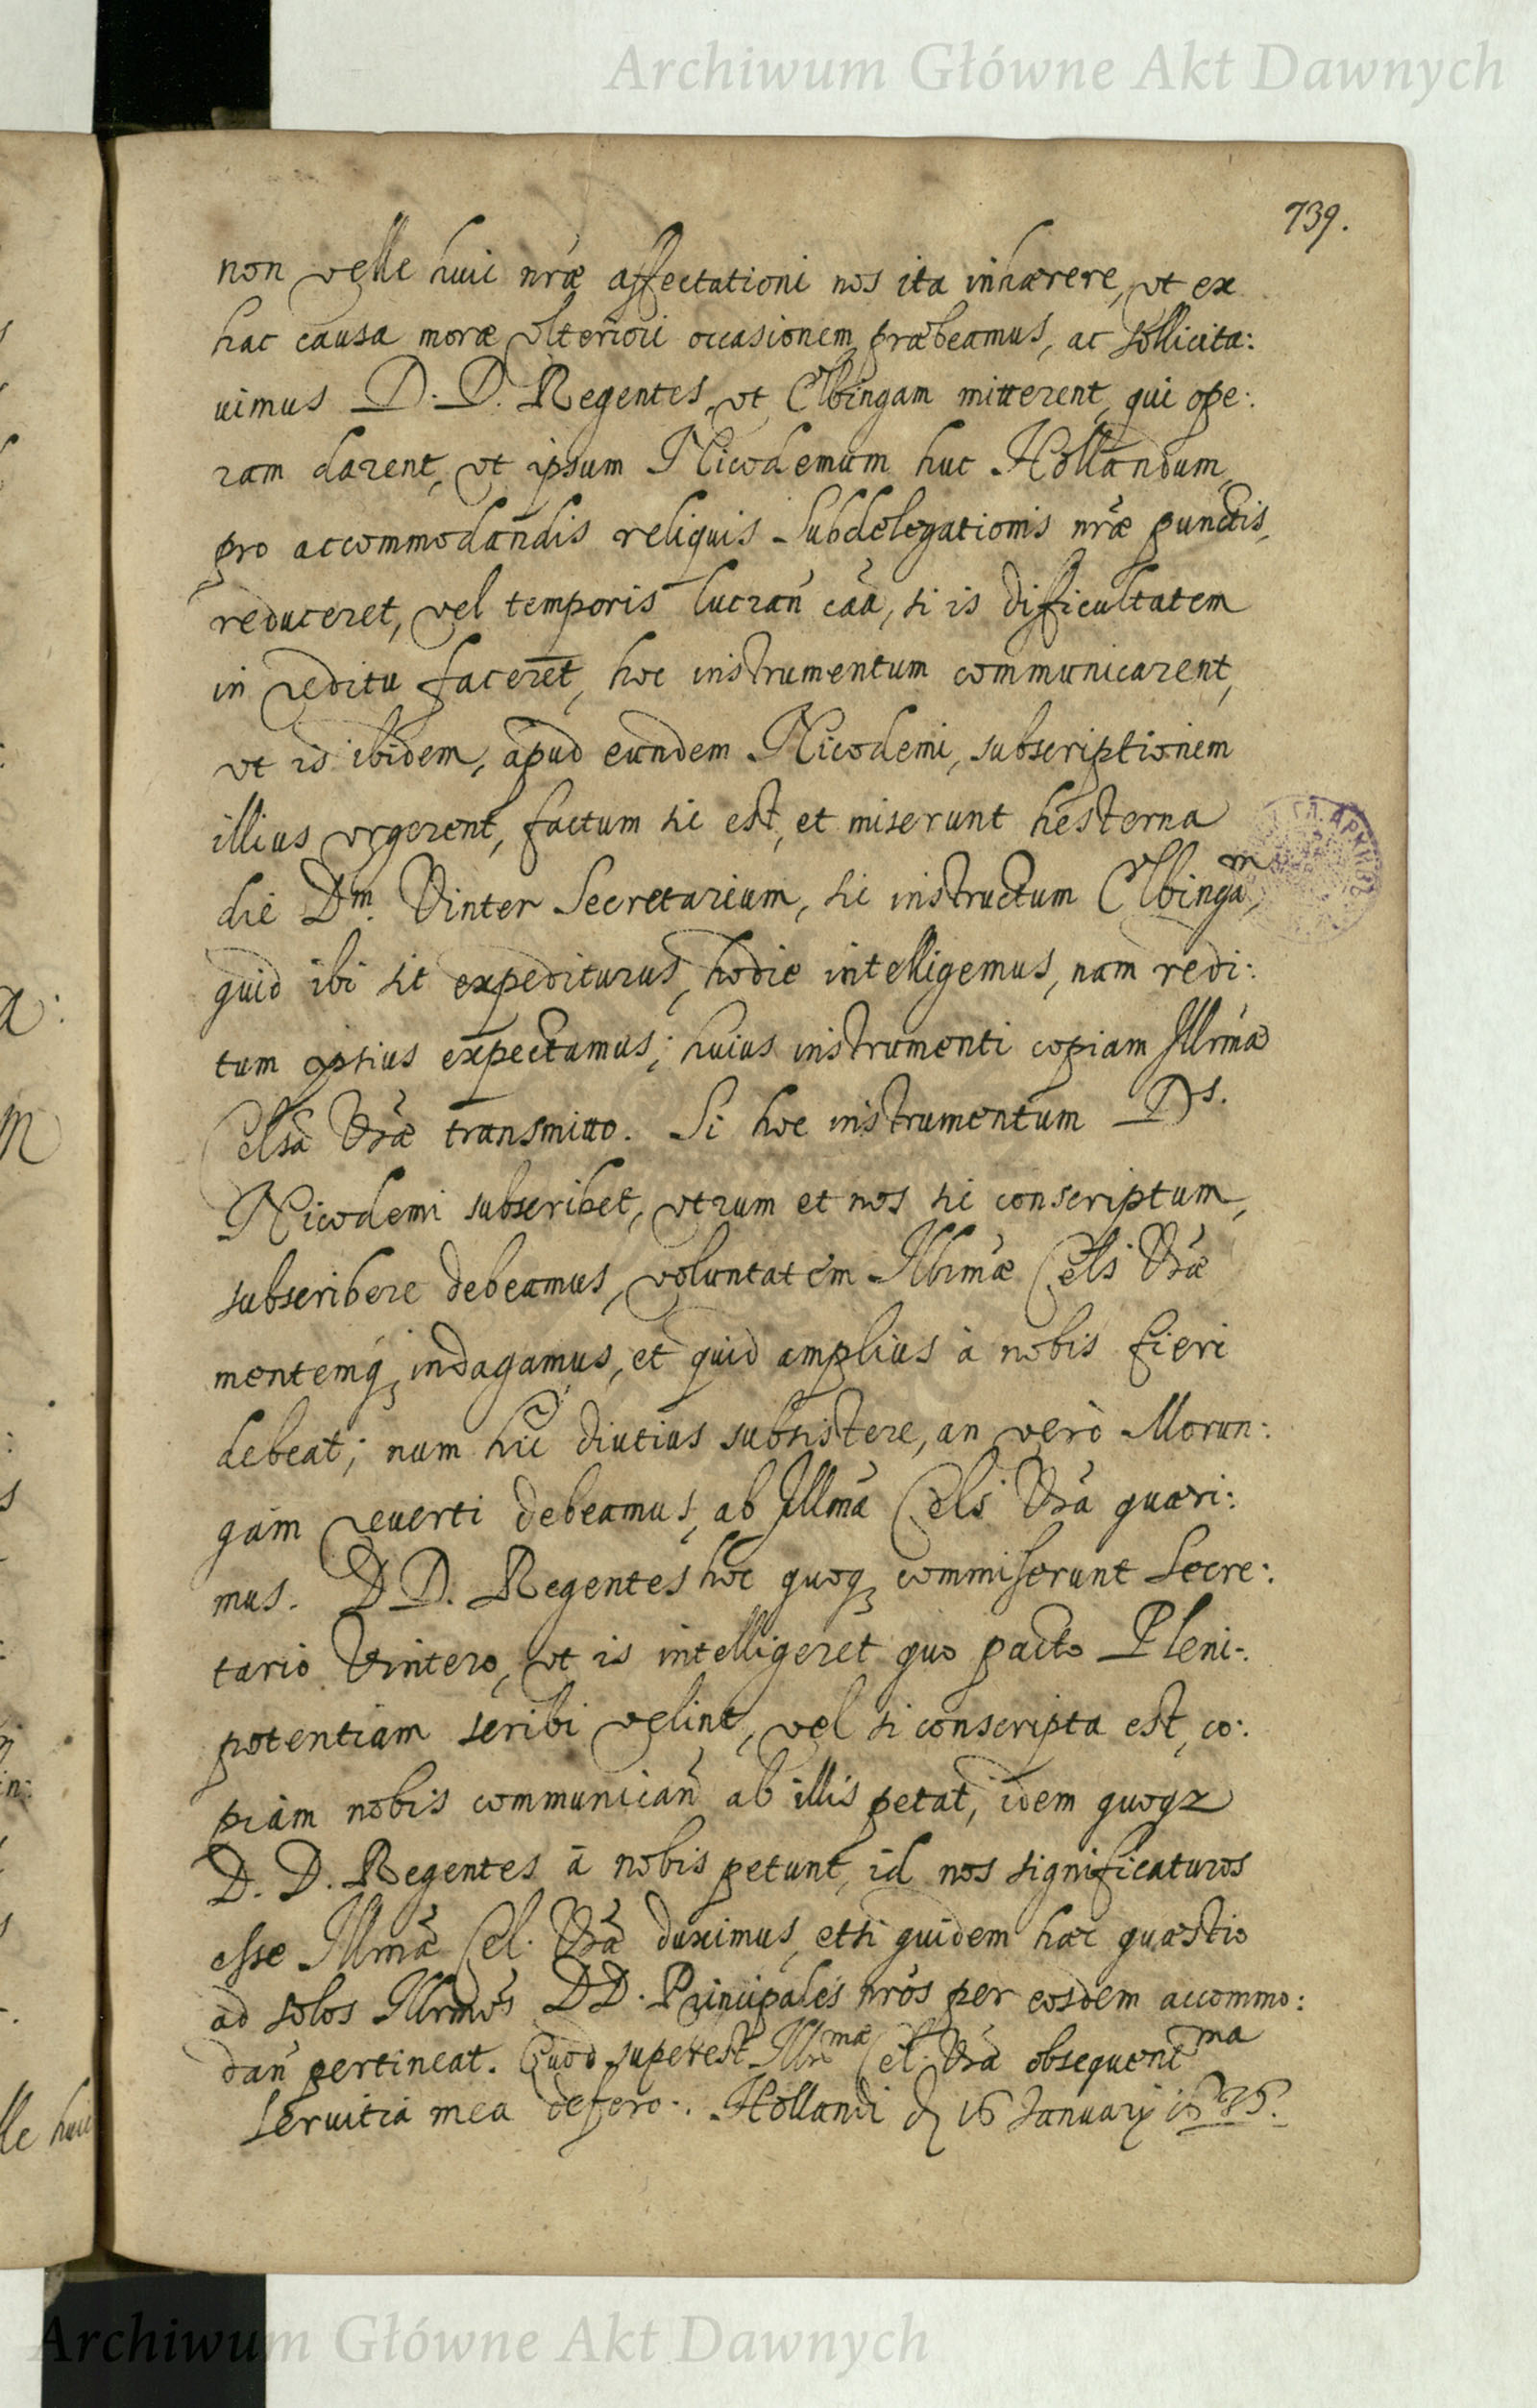 Archiwum Główne Akt Dawnych
739.
non velle huic nræ affectationi nos ita inhærere, vt ex
hac causa moræ vlteriori occasionem præbeamus, ac sollicita:
uimus D. D. Regentes, vt Elbingam mitterent, qui ope:
ram darent, vt ipsum Nicodemum huc Hollandum,
pro accommodandis reliquis Subdelegationis nræ punctis,
reduceret, vel temporis lucran̄ cãa, si is dificultatem
in reditu faceret, hoc instrumentum communicarent,
vt id ibidem, apud eundem Nicodemi, subscriptionem
illius vrgerent, factum sic est, et miserunt hesterna
die Dm. Vinter Secretarium, sic instructum Elbingam,
quid ibi sit expediturus, hodie intelligemus, nam redi:
tum ipsius expectamus; huius instrumenti copiam Illrmæ
Celsñ Vræ transmitto. Si hoc instrumentum Ds.
Nicodemi subscribet, vtrum et nos sic conscriptum,
subscribere debeamus, voluntatem Illrmæ Cels Vræ
mentemq3 indagamus, et quid amplius à nobis fieri
debeat; num hîc diutius subsistere, an verò Morun:
gam reuerti debeamus, ab Illmâ Cels Vrâ quæri:
mus. D D. Regentes hoc quoq3 commiserunt Secre:
tario Vintero, vt is intelligeret quo pacto Pleni:
potentiam scribi velint, vel si conscripta est, co:
piam nobis communican̄ ab illis petat, idem quoq3
D. D. Regentes à nobis petunt, id nos significaturos
esse Illmæ Cel. Vræ duximus, etsi quidem hæc quæstio
ad solos Illrmos DD. Principales nros per eosdem accommo:
dan̄ pertineat. Quod superest Illrmæ Cel. Vræ obsequentma
seruitia mea defero. Hollandi d 16 January 1636.
lle huic
Archiwum Główne Akt Dawnych